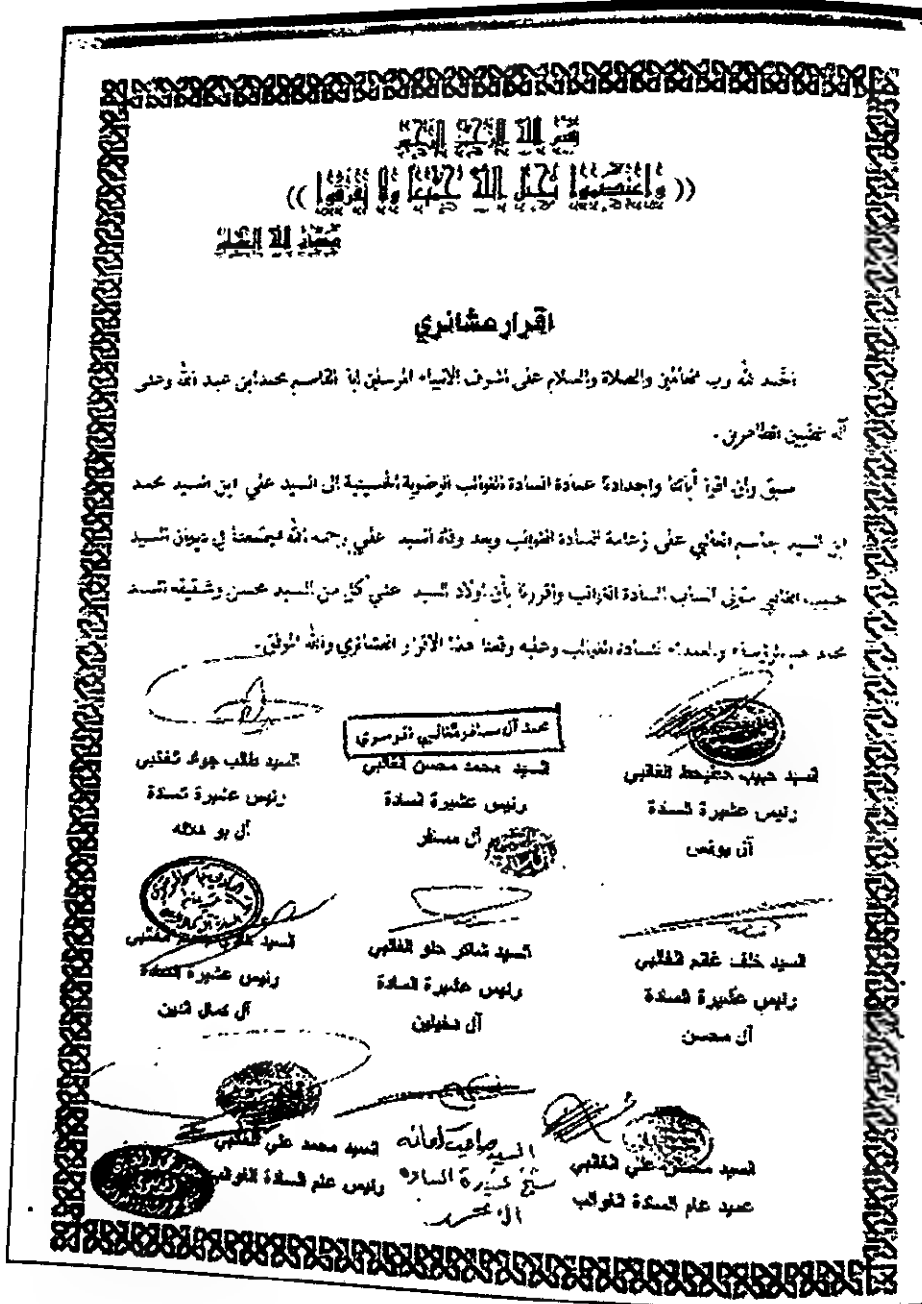 بسم الله الرحمن الرحيم
(( واعتصموا بحبل الله جميعا ولا تفرقوا ))
صدق الله العظيم
اقرار عشائري
الحمد لله رب العالمين والصلاة والسلام على اشرف الانبياء المرسلين ابا القاسم محمد ابن عبد الله وعلى
آله الطيبين الطاهرين .
سبق وان اقروا آبائنا واجدادنا عمادة السادة الغوالب الرضوية الحسينية إلى السيد علي ابن السيد محمد
ابن السيد جاسم الغالبي على زعامة السادة الغوالب وبعد وفاة السيد علي رحمه الله اجتمعنا في ديوان السيد
حبيب الغالبي انساب السادة الغوالب وأقررنا بأن اولاد السيد علي كل من السيد محسن وشقيقه السيد
محمد هم الرؤساء والعمداء للسادة الغوالب وعليه وقعنا هذا الاقرار العشائري والله الموفق .
السيد حبيب حفيظ الغالبي
رئيس عشيرة السادة
آل يونس
السيد محمد محسن الغالبي
رئيس عشيرة السادة
آل مسافر
السيد طالب جواد الغالبي
رئيس عشيرة السادة
آل بو
السيد خلف غانم الغالبي
رئيس عشيرة السادة
آل محسن
السيد شاكر حلو الغالبي
رئيس عشيرة السادة
آل
السيد الغالبي
رئيس عشيرة السادة
آل كمال الدين
السيد محسن علي الغالبي
عميد عام السادة الغوالب
السيد
شيخ عشيرة السادة
ال
السيد محمد علي الغالبي
رئيس عام السادة الغوالب